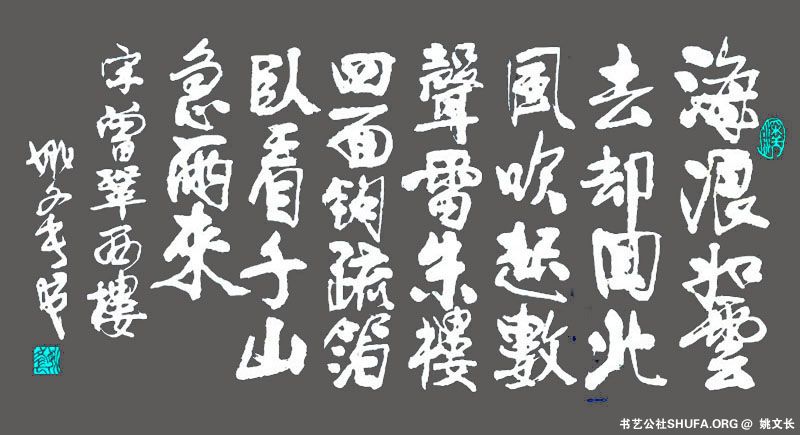 海浪如雲
去却回北
風吹起數
聲雷朱樓
四面鉤疏箔
臥看千山
急雨來
宋曾鞏西樓
姚文长书
书艺公社SHUFA.ORG @ 姚文长